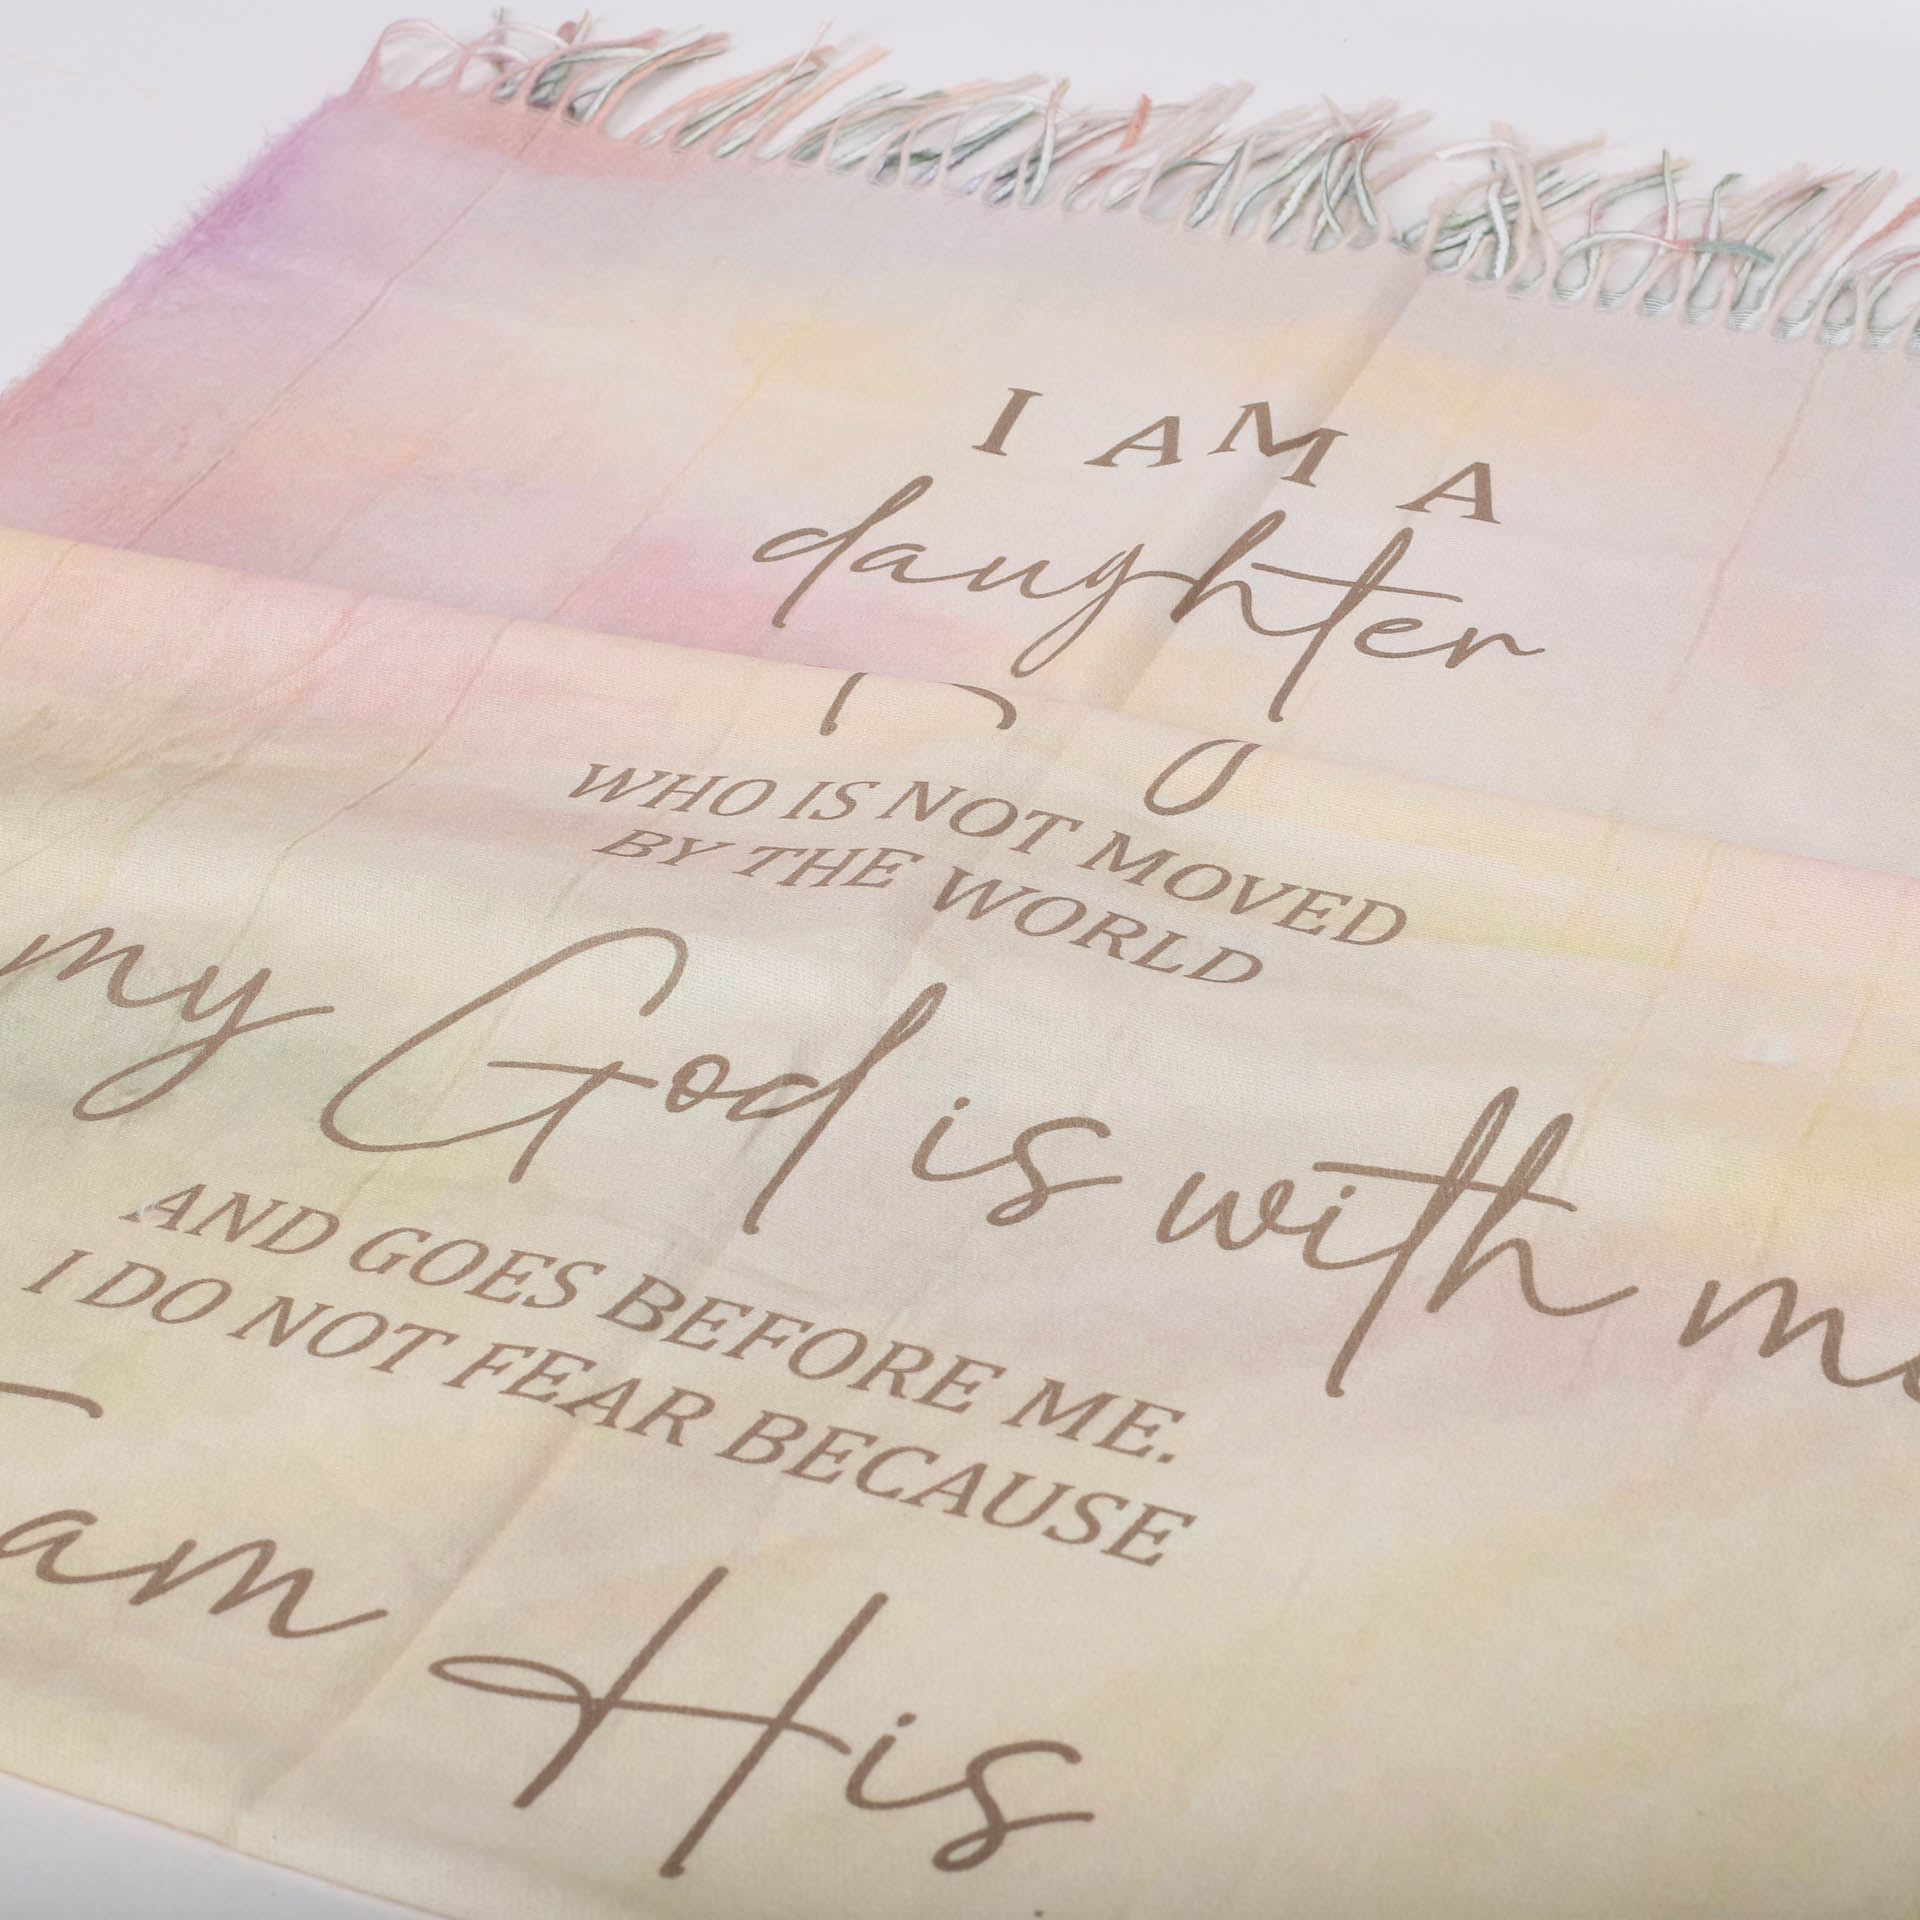 I AM A
daughter
WHO IS NOT MOVED
BY THE WORLD
my God is with me
AND GOES BEFORE ME.
I DO NOT FEAR BECAUSE
I am His